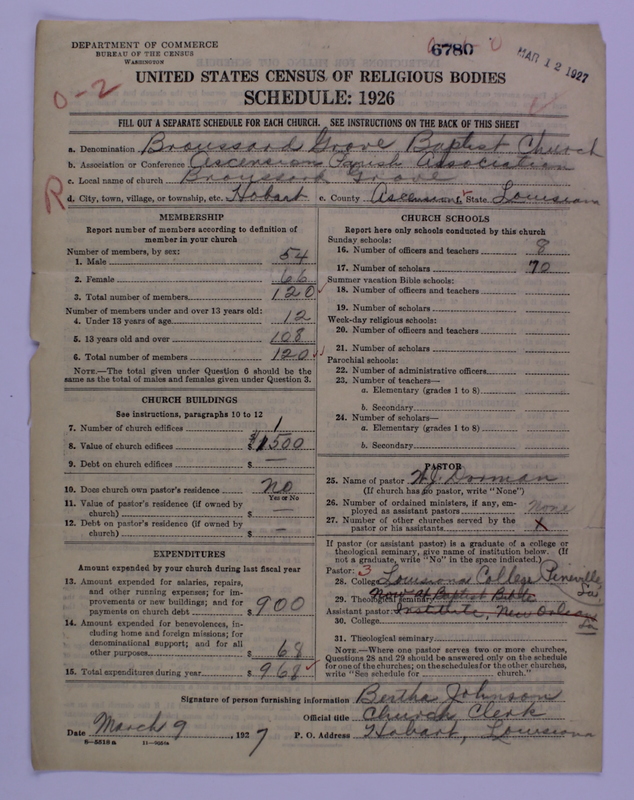 DEPARTMENT OF COMMERCE
BUREAU OF THE CENSUS
WASHINGTON
6780
MAR 12 1927
0-2
UNITED STATES CENSUS OF RELIGIOUS BODIES
SCHEDULE: 1926
FILL OUT A SEPARATE SCHEDULE FOR EACH CHURCH. SEE INSTRUCTIONS ON THE BACK OF THIS SHEET
a. Denomination Broussard Grove, Baptist Church
b. Association or Conference Ascension Parish Association
c. Local name of church Broussard Grove
R
d. City, town, village, or township, etc. Hobart e. County Ascension f. State Louisiana
MEMBERSHIP
Report number of members according to definition of
member in your church
Number of members, by sex:
1. Male 54
2. Female 66
3. Total number of members 120
Number of members under and over 13 years old:
4. Under 13 years of age 12
5. 13 years old and over 108
6. Total number of members 120
NOTE.—The total given under Question 6 should be the
same as the total of males and females given under Question 3.
CHURCH BUILDINGS
See instructions, paragraphs 10 to 12
7. Number of church edifices 1
8. Value of church edifices $1500
9. Debt on church edifices $ —
10. Does church own pastor's residence No
Yes or No
11. Value of pastor's residence (if owned by
church) $ —
12. Debt on pastor's residence (if owned by
church) $ —
EXPENDITURES
Amount expended by your church during last fiscal year
13. Amount expended for salaries, repairs,
and other running expenses; for im-
provements or new buildings; and for
payments on church debt $ 900
14. Amount expended for benevolences, in-
cluding home and foreign missions; for
denominational support; and for all
other purposes $ 68
15. Total expenditures during year $ 968
CHURCH SCHOOLS
Report here only schools conducted by this church
Sunday schools:
16. Number of officers and teachers 8
17. Number of scholars 70
Summer vacation Bible schools:
18. Number of officers and teachers
19. Number of scholars
Week-day religious schools:
20. Number of officers and teachers
21. Number of scholars
Parochial schools:
22. Number of administrative officers
23. Number of teachers—
a. Elementary (grades 1 to 8)
b. Secondary
24. Number of scholars—
a. Elementary (grades 1 to 8)
b. Secondary
PASTOR
25. Name of pastor W.J. Dorman
(If church has no pastor, write "None")
26. Number of ordained ministers, if any, em-
ployed as assistant pastors None
27. Number of other churches served by the
pastor or his assistants X
If pastor (or assistant pastor) is a graduate of a college or
theological seminary, give name of institution below. (If
not a graduate, write "No" in the space indicated.)
Pastor: 3
28. College Louisiana College Pineville La
29. Theological seminary Now at Baptist Bible
Assistant pastor: Institute, New Orleans
30. College La
31. Theological seminary
NOTE.—Where one pastor serves two or more churches,
Questions 28 and 29 should be answered only on the schedule
for one of the churches; on the schedules for the other churches,
write "See schedule for church."
Signature of person furnishing information Bertha Johnson
Official title Church Clerk
Date March 9, 1927 P. O. Address Hobart, Louisiana